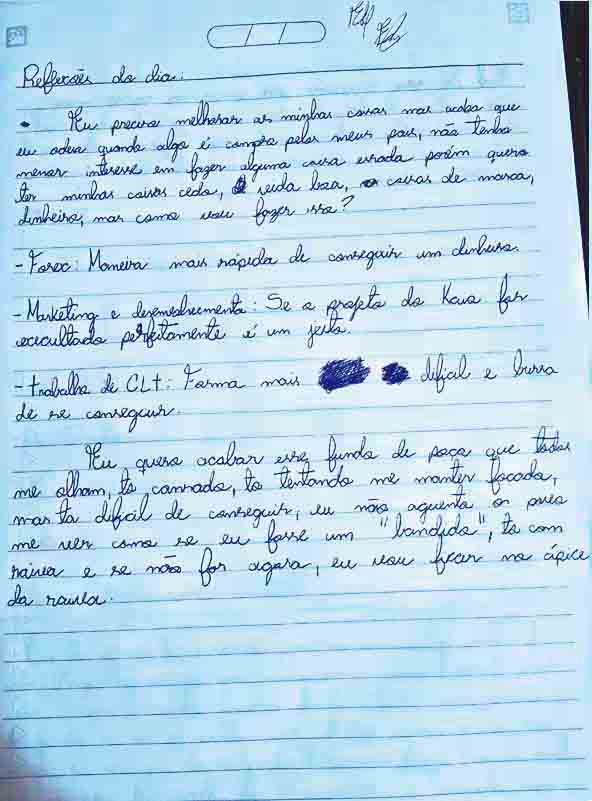 Reflexões do dia:
• Eu preciso melhorar as minhas coisas mas acaba que
eu odeio quando algo é compra pelos meus pais, não tenho
menor interesse em fazer alguma coisa errada porém quero
ter minhas coisas cedo, vida boa, coisas de marca,
dinheiro, mas como vou fazer isso?
- Forex: Maneira mais rápida de conseguir um dinheiro.
- Marketing e desenvolvimento: Se o projeto do Kaua for
executado perfeitamente é um jeito.
- trabalho de CLt: Forma mais dificil e burra
de se conseguir.
Eu quero acabar esse fundo de poço que todos
me olham, to cansado, to tentando me manter focado,
mas ta dificil de conseguir, eu não aguento os
me ver como se eu fosse um "bandido", to com
raiva e se não for agora, eu vou ficar no ápice
da raiva.